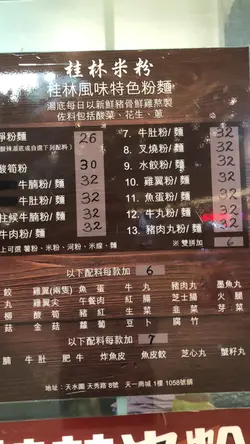 桂林米粉
桂林風味特色粉麵
湯底每日以新鮮豬骨鮮雞熬製
佐料包括酸菜、花生、蔥
淨粉麵 26
酸筍粉 30
牛腩粉/麵 32
粉/麵 32
柱候牛腩粉/麵 32
牛肉粉/麵 32
7. 牛肚粉/麵 32
8. 叉燒粉/麵 32
9. 水餃粉/麵 32
10. 雞翼粉/麵 32
11. 魚蛋粉/麵 32
12. 牛丸粉/麵 32
13. 豬肉丸粉/麵 32
上可選 薯粉、米粉、河粉、米線、麵
※ 雙拼加 6
以下配料每款加 6
餃 雞翼(兩隻) 魚蛋 牛丸 豬肉丸 墨魚丸
雞翼尖 午餐肉 紅腸 芝士腸 火腿
柳 酸筍 豬紅 生菜 韭菜 芽菜
菇 金菇 蘿蔔 豆卜 腐竹
以下配料每款加 7
腩 牛肚 肥牛 炸魚皮 魚皮餃 芝心丸 蟹籽丸
地址：天水圍 天秀路 8號 天一商城 1樓 1058號舖